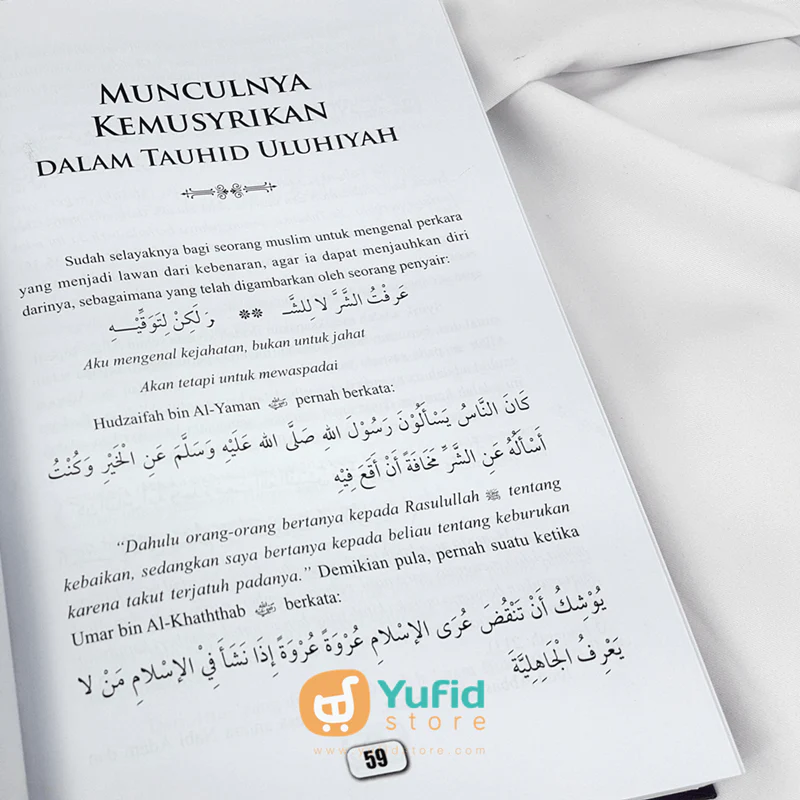 MUNCULNYA
KEMUSYRIKAN
DALAM TAUHID ULUHIYAH
Sudah selayaknya bagi seorang muslim untuk mengenal perkara
yang menjadi lawan dari kebenaran, agar ia dapat menjauhkan diri
darinya, sebagaimana yang telah digambarkan oleh seorang penyair:
عَرَفْتُ الشَّرَّ لَا لِلشَّـ ** وَلَكِنْ لِتَوَقِّيْـــهِ
Aku mengenal kejahatan, bukan untuk jahat
Akan tetapi untuk mewaspadai
Hudzaifah bin Al-Yaman pernah berkata:
كَانَ النَّاسُ يَسْأَلُوْنَ رَسُوْلَ اللهِ صَلَّى الله عَلَيْهِ وَسَلَّمَ عَنِ الْخَيْرِ وَكُنْتُ
أَسْأَلُهُ عَنِ الشَّرِّ مَخَافَةً أَنْ أَقَعَ فِيْهِ
“Dahulu orang-orang bertanya kepada Rasulullah ﷺ tentang
kebaikan, sedangkan saya bertanya kepada beliau tentang keburukan
karena takut terjatuh padanya.” Demikian pula, pernah suatu ketika
Umar bin Al-Khaththab berkata:
يُوْشِكُ أَنْ تَنْقُضَ عُرَى الإِسْلَامِ عُرْوَةً عُرْوَةً إِذَا نَشَأَ فِيْ الإِسْلَامِ مَنْ لَا
يَعْرِفُ الْجَاهِلِيَّةَ
Yufid
store
www.yufidstore.com
59